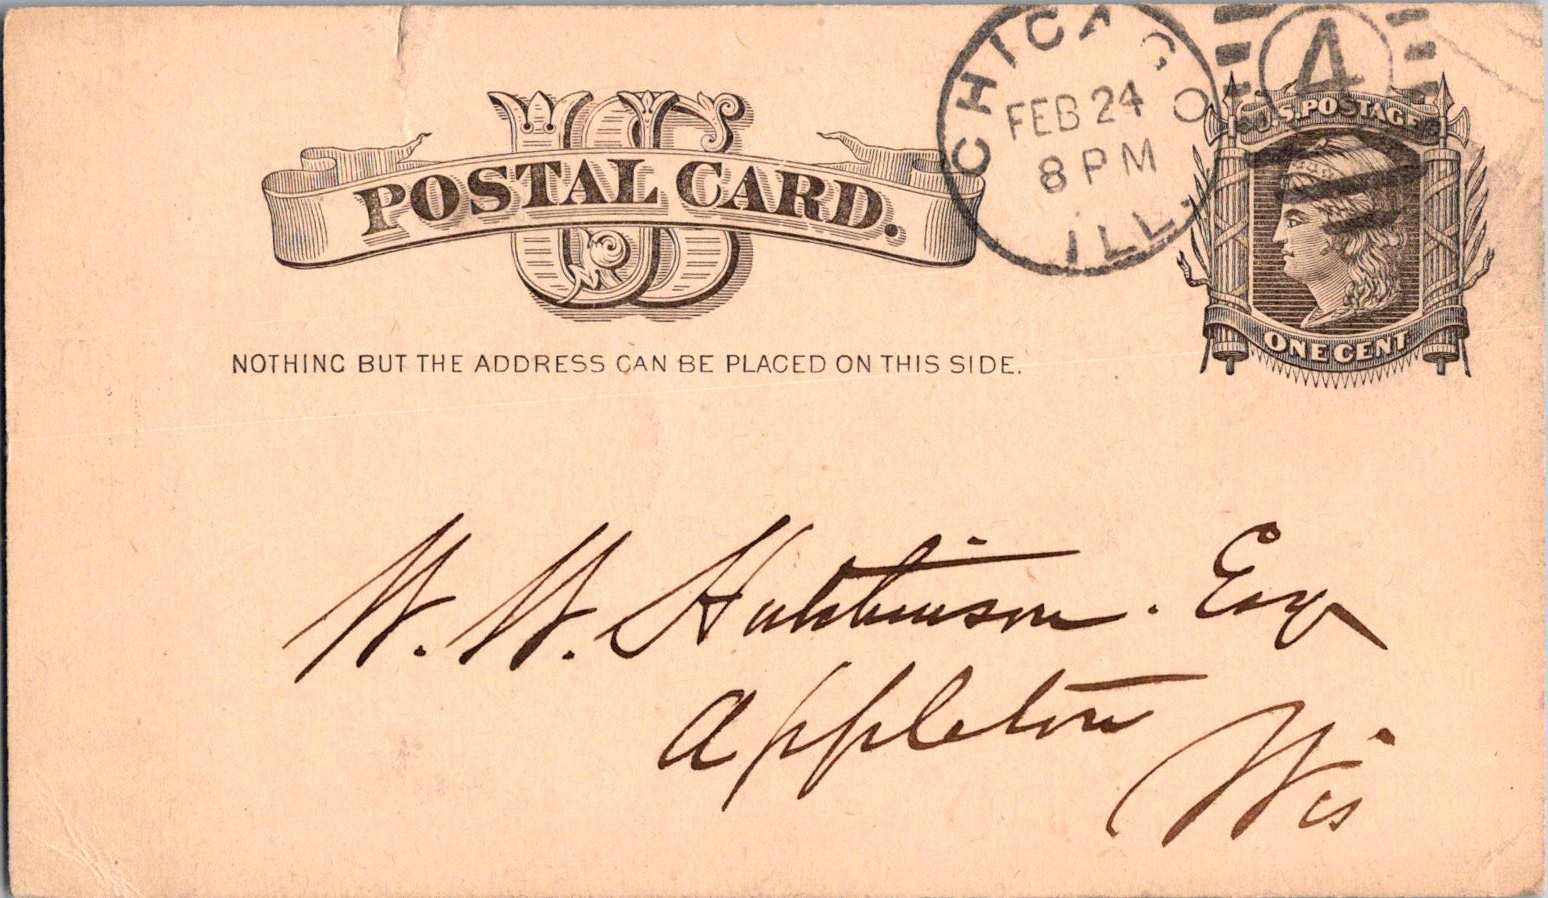 US
POSTAL CARD.
CHICAGO
FEB 24
8 PM
ILL.
4
U.S. POSTAGE
ONE CENT
NOTHING BUT THE ADDRESS CAN BE PLACED ON THIS SIDE.
W. W. Hutchinson. Esq
Appleton
Wis